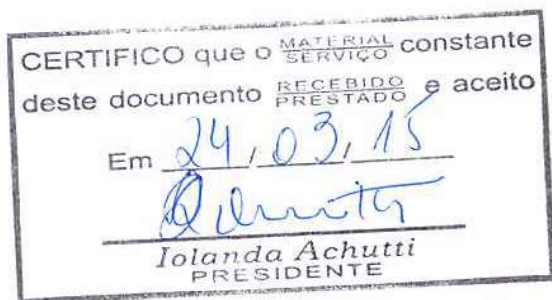 CERTIFICO que o MATERIAL/SERVIÇO constante
deste documento RECEBIDO/PRESTADO e aceito
Em 24/03/15
Iolanda Achutti
PRESIDENTE